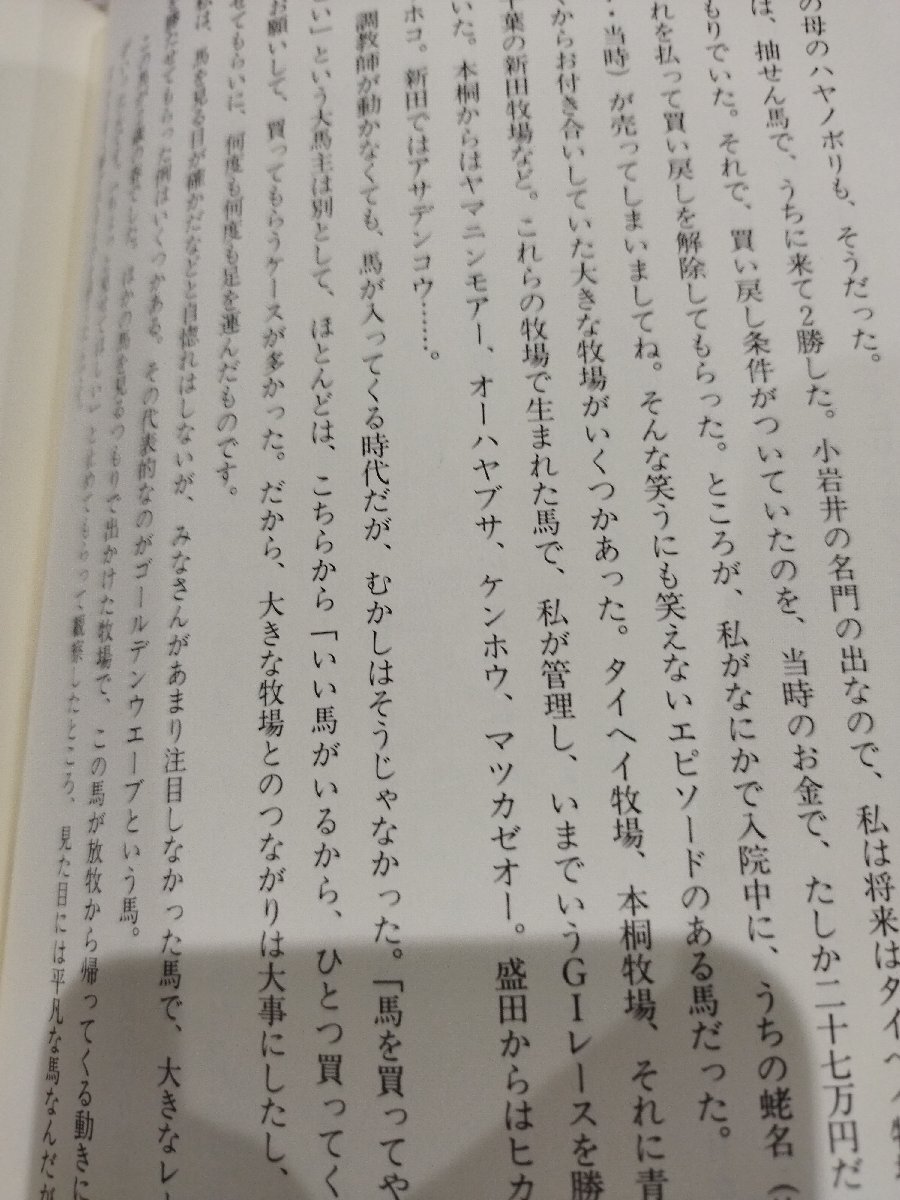 の母のハヤノボリも、そうだった。
は、抽せん馬で、うちに来て2勝した。小岩井の名門の出なので、私は将来はタイヘイ牧
もりでいた。それで、買い戻し条件がついていたのを、当時のお金で、たしか二十七万円だ
れを払って買い戻しを解除してもらった。ところが、私がなにかで入院中に、うちの蛯名（
・当時）が売ってしまいましてね。そんな笑うにも笑えないエピソードのある馬だった。
くからお付き合いしていた大きな牧場がいくつかあった。タイヘイ牧場、本桐牧場、それに青
千葉の新田牧場など。これらの牧場で生まれた馬で、私が管理し、いまでいうGⅠレースを勝
いた。本桐からはヤマニンモアー、オーハヤブサ、ケンホウ、マツカゼオー。盛田からはヒカ
ホコ。新田ではアサデンコウ……。
調教師が動かなくても、馬が入ってくる時代だが、むかしはそうじゃなかった。「馬を買ってや
い」という大馬主は別として、ほとんどは、こちらから「いい馬がいるから、ひとつ買ってく
お願いして、買ってもらうケースが多かった。だから、大きな牧場とのつながりは大事にしたし、
せてもらいに、何度も何度も足を運んだものです。
私は、馬を見る目が確かだなどと自惚れはしないが、みなさんがあまり注目しなかった馬で、大きなレ
を勝たせてもらった例はいくつかある。その代表的なのがゴールデンウエーブという馬。
ほかの馬を見るつもりで出かけた牧場で、この馬が放牧から帰ってくる動きに
とすめてもらって、観察したところ、見た目には平凡な馬なんだが